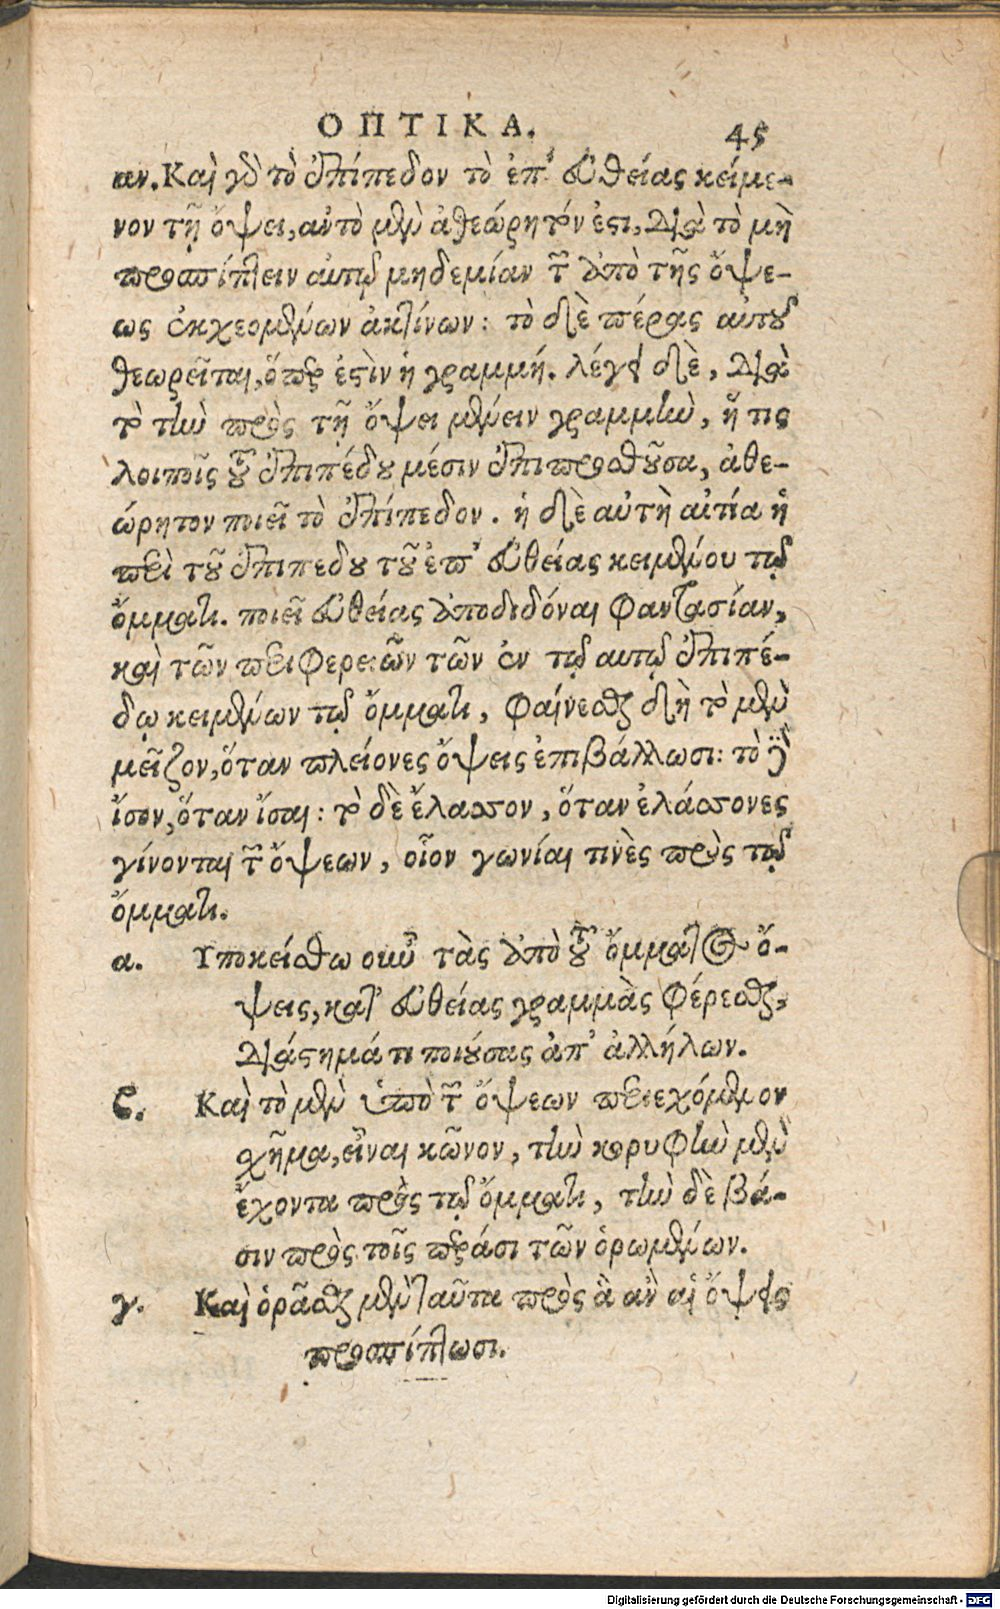 ΟΠΤΙΚΑ. 45
αν. Καὶ γὸ τὸ ἐπίπεδον τὸ ἐπ' εὐθείας κείμε-
νον τῇ ὄψει, αὐτὸ μὲν ἀθεώρητόν ἐστι, διὰ τὸ μὴ
προσπίπτειν αὐτῷ μηδεμίαν τῶν ἀπὸ τῆς ὄψε-
ως ἐκχεομένων ἀκτίνων: τὸ δὲ πέρας αὐτοῦ
θεωρεῖται, ὅπερ ἐστὶν ἡ γραμμή. λέγει δὲ, διὰ
τὸ τὴν πρὸς τῇ ὄψει μένειν γραμμὴν, ἥ τις
λοιποῖς τοῦ ἐπιπέδου μέσιν ἐπιπροσθοῦσα, ἀθε-
ώρητον ποιεῖ τὸ ἐπίπεδον. ἡ δὲ αὐτὴ αἰτία ἡ
περὶ τοῦ ἐπιπέδου τοῦ ἐπ' εὐθείας κειμένου τῷ
ὄμματι. ποιεῖ εὐθείας ἀποδιδόναι φαντασίαν,
καὶ τῶν περιφερειῶν τῶν ἐν τῷ αὐτῷ ἐπιπέ-
δῳ κειμένων τῷ ὄμματι, φαίνεσθαι δὴ τὸ μὲν
μεῖζον, ὅταν πλείονες ὄψεις ἐπιβάλλωσι: τὸ δὲ
ἴσον, ὅταν ἴσαι: τὸ δὲ ἔλασσον, ὅταν ἐλάσσονες
γίνονται τῶν ὄψεων, οἷον γωνίαι τινὲς πρὸς τῷ
ὄμματι.
α. Υποκείσθω οὖν τὰς ἀπὸ τοῦ ὄμματος ὄ-
ψεις, κατ' εὐθείας γραμμὰς φέρεσθαι,
διάστημά τι ποιούσας ἀπ' ἀλλήλων.
ϛ. Καὶ τὸ μὲν ὑπὸ τῶν ὄψεων περιεχόμενον
σχῆμα, εἶναι κῶνον, τὴν κορυφὴν μὲν
ἔχοντα πρὸς τῷ ὄμματι, τὴν δὲ βά-
σιν πρὸς τοῖς πέρασι τῶν ὁρωμένων.
γ. Καὶ ὁρᾶσθαι μὲν ταῦτα πρὸς ἃ ἂν αἱ ὄψεις
προσπίπτωσι.
Digitalisierung gefördert durch die Deutsche Forschungsgemeinschaft - DFG